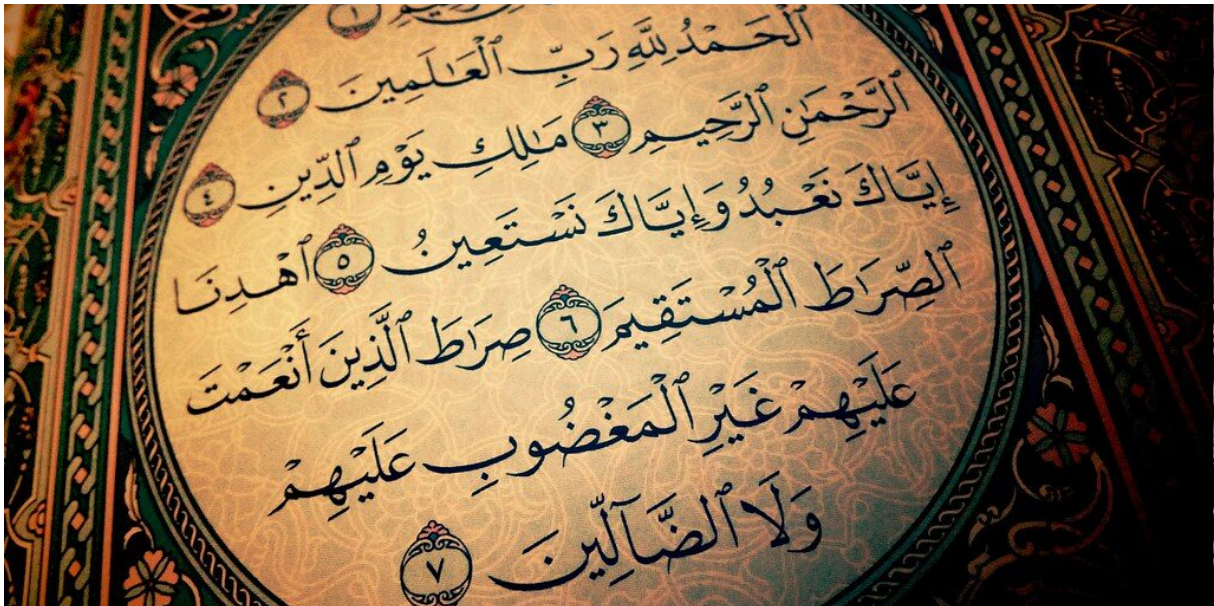 ٱلْحَمْدُ لِلَّهِ رَبِّ ٱلْعَٰلَمِينَ ٢
ٱلرَّحْمَٰنِ ٱلرَّحِيمِ ٣ مَٰلِكِ يَوْمِ ٱلدِّينِ ٤
إِيَّاكَ نَعْبُدُ وَإِيَّاكَ نَسْتَعِينُ ٥ ٱهْدِنَا
ٱلصِّرَٰطَ ٱلْمُسْتَقِيمَ ٦ صِرَٰطَ ٱلَّذِينَ أَنْعَمْتَ
عَلَيْهِمْ غَيْرِ ٱلْمَغْضُوبِ عَلَيْهِمْ
وَلَا ٱلضَّآلِّينَ ٧